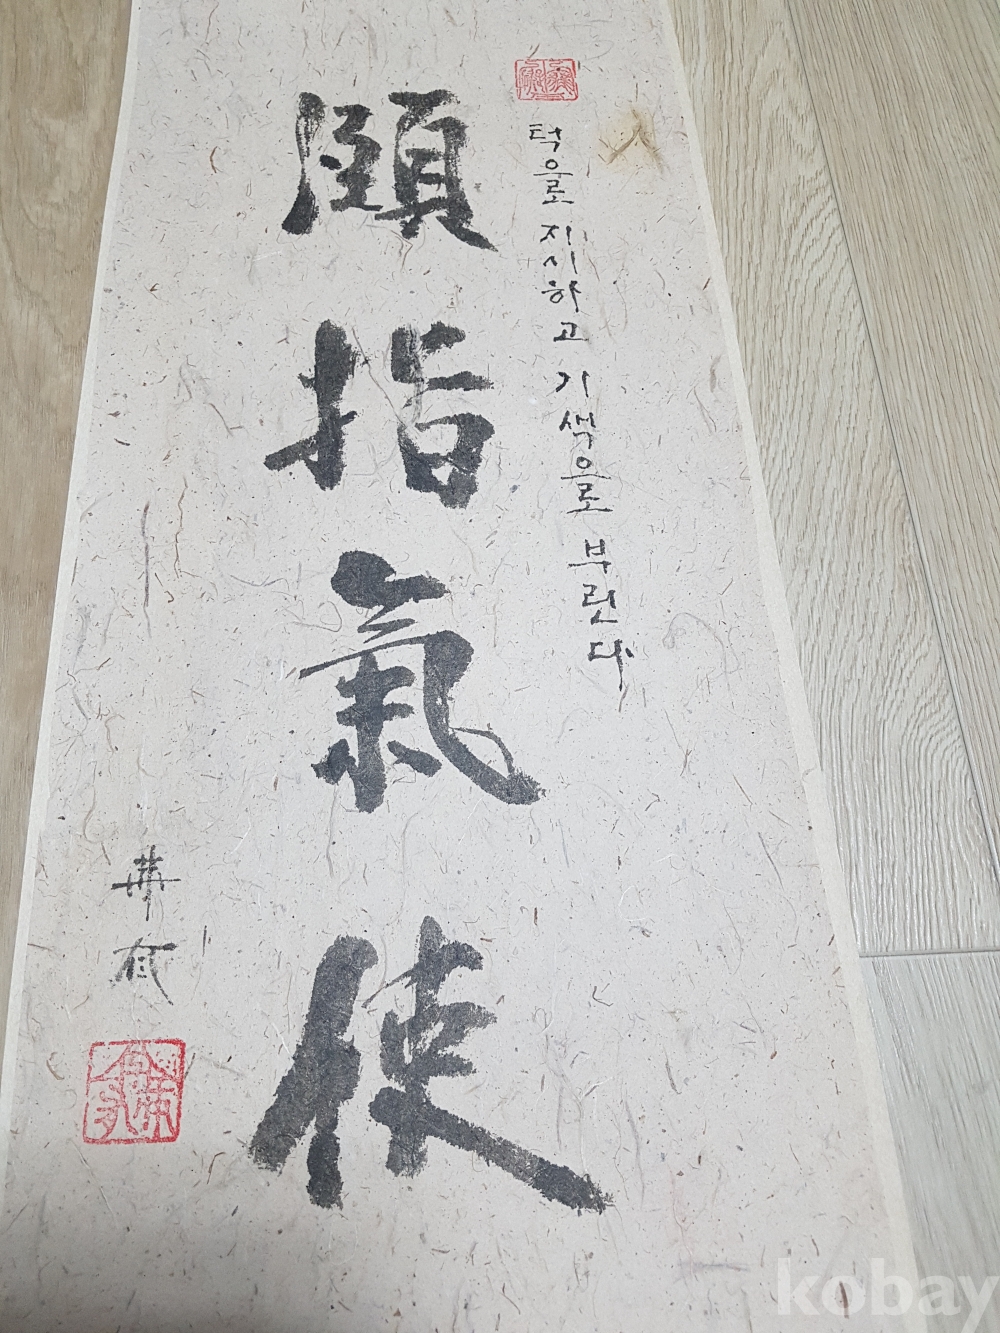 頤指氣使
턱으로 지시하고 기색으로 부린다
kobay